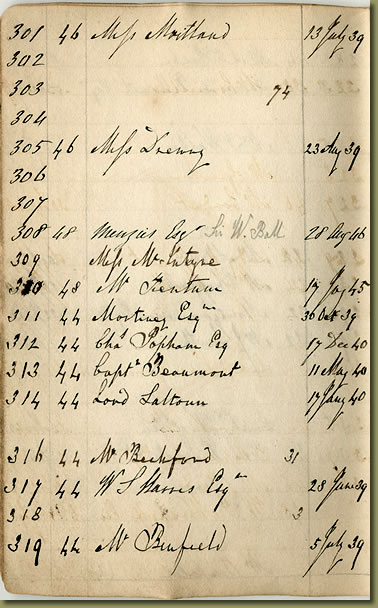 301 46 Miss Maitland 13 July 39
302
303 74
304
305 46 Miss Drewry 23 Aug 39
306
307
308 48 Menzies Esqr Sir W. Ball 28 Aug 46
309 Miss McIntyre
310 48 Mr 17 45
311 44 Martinez Esqre 30 Oct 39
312 44 Chas Popham Esq 17 Dec 40
313 44 Captn Beaumont 11 May 40
314 44 Lord Saltoun 17 Jany 40
316 44 Mr Beckford 31
317 44 W S Harris Esqre 28 June 39
318 3
319 44 Mr Binfield 5 July 39